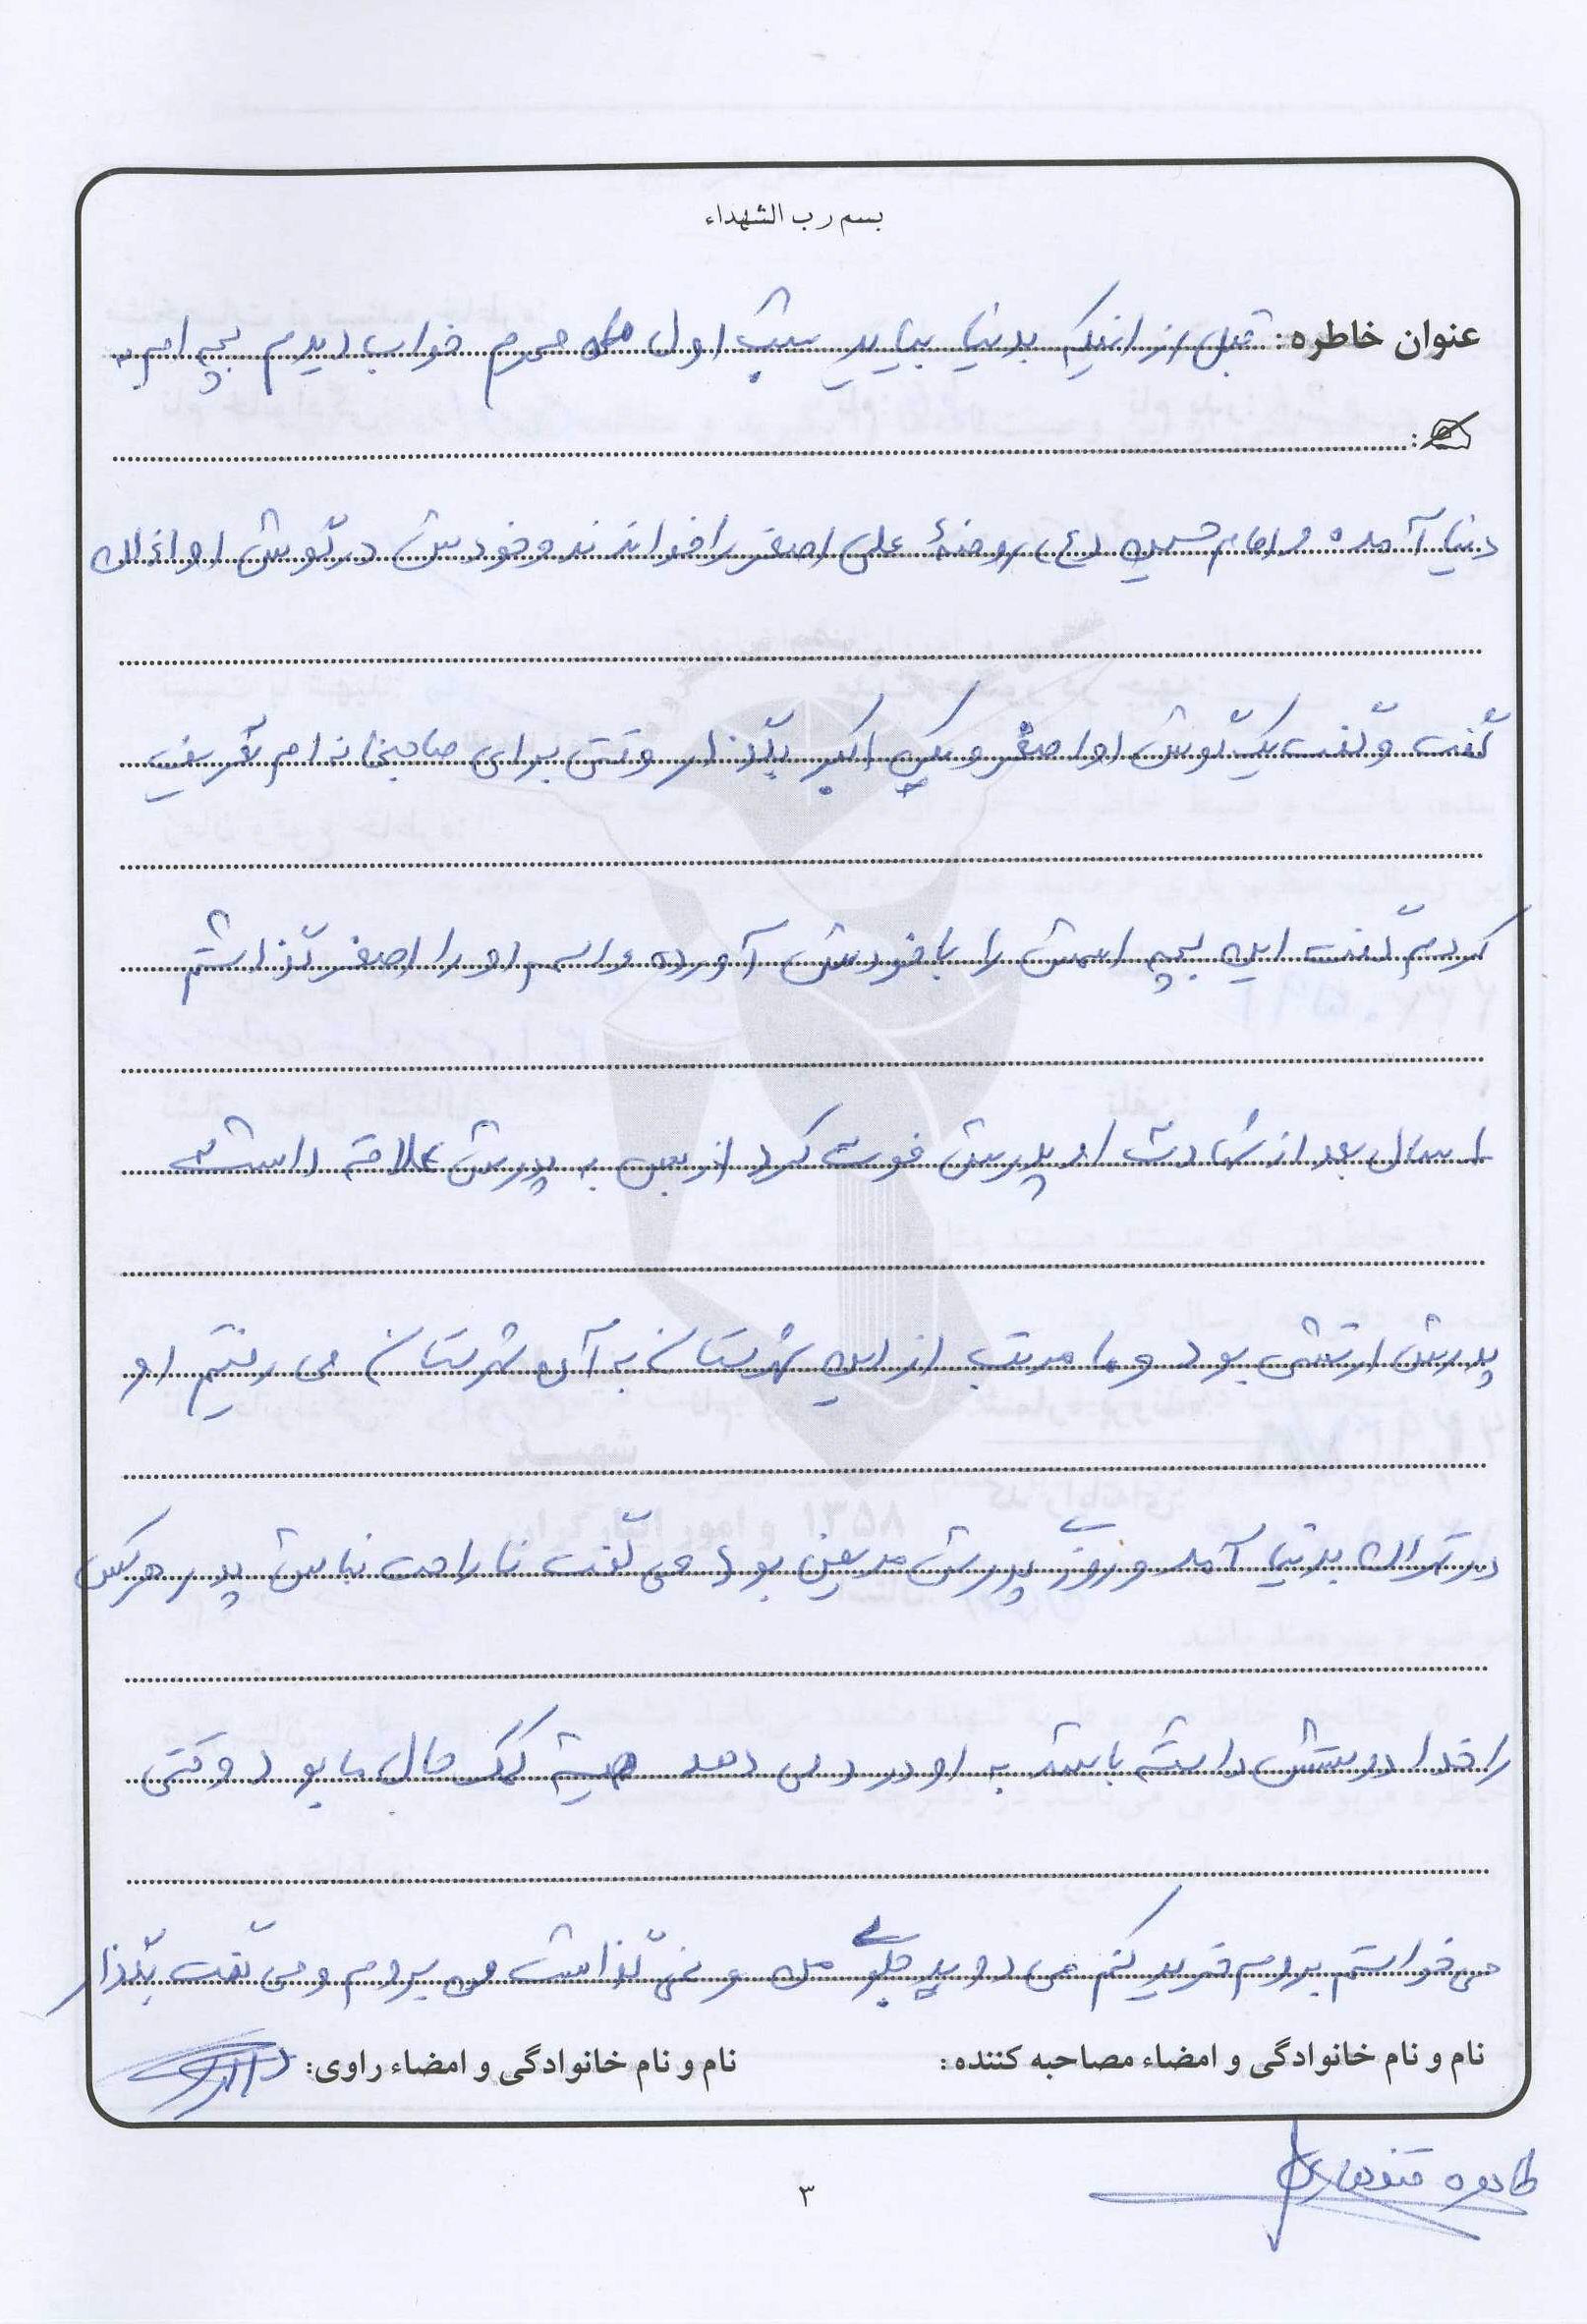 بسم رب الشهداء
عنوان خاطره: قبل از اینکه بدنیا بیاید شب اول ماه محرم خواب دیدم بچه ام به
دنیا آمده و امام حسین (ع) روضهٔ علی اصغر را خواندند و خودش در گوش او اذان
گفت و گفت یک گوش او اصغر و یکی اکبر بگذار وقتی برای صاحبخانه ام تعریف
کردم گفت این بچه اسمش را با خودش آورده و اسم او را اصغر گذاشتم
۱ سال بعد از شهادت او پدرش فوت کرد از بس به پدرش علاقه داشت
پدرش ارتشی بود و ما مرتب از این شهرستان به آن شهرستان می رفتیم او
در تهران بدنیا آمد و روزی پدرش مریض بود می گفت ناراحت نباش پدر هر کس
را خدا دوستش داشته باشد به او درد می دهد همیشه کمک حال ما بود وقتی
می خواستم بروم خرید کنم می دوید جلوی من و نمی گذاشت من بروم و می گفت بگذار
نام و نام خانوادگی و امضاء مصاحبه کننده: نام و نام خانوادگی و امضاء راوی:
طاهره قندهاری
۳